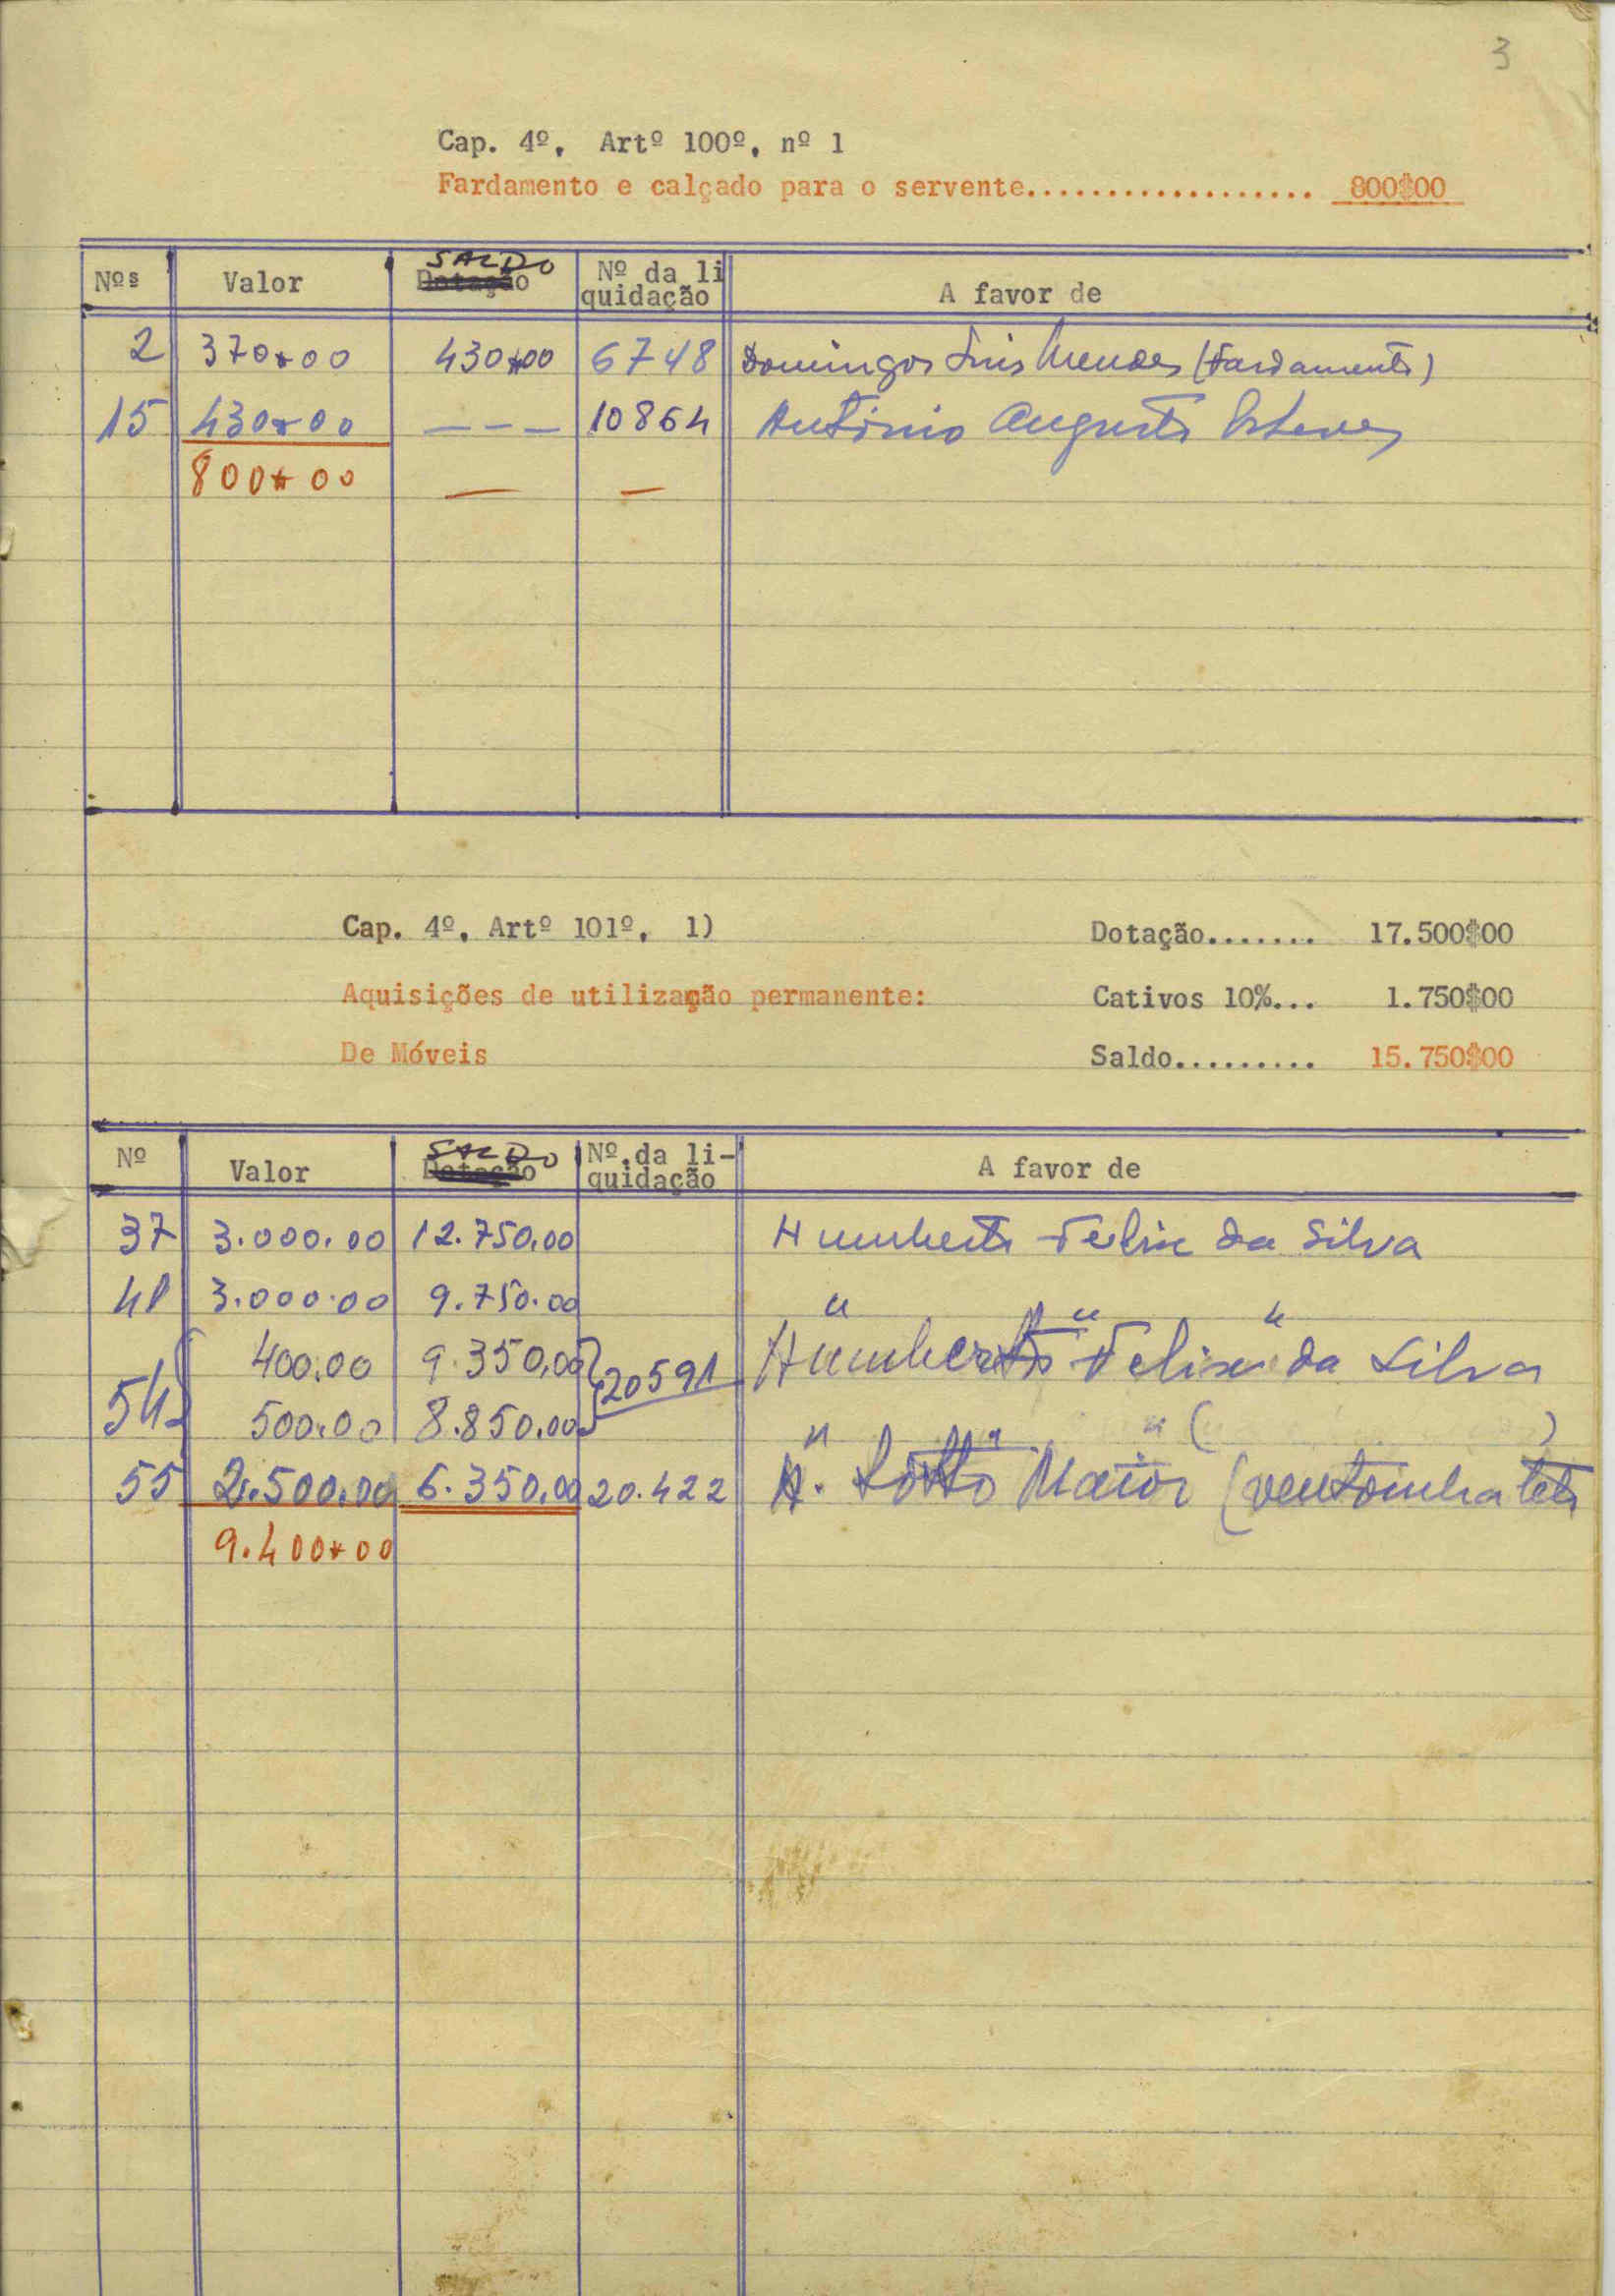 3
Cap. 4º, Artº 100º, nº 1
Fardamento e calçado para o servente.................. 800$00
Nºs Valor SALDO Dotação Nº da li quidação A favor de
2 370$00 430$00 6748 Domingos Luis Mendes (Fardamento)
15 430$00 --- 10864 António Augusto Esteves
800$00 — —
Cap. 4º, Artº 101º, 1) Dotação....... 17.500$00
Aquisições de utilização permanente: Cativos 10%... 1.750$00
De Móveis Saldo......... 15.750$00
Nº Valor SALDO Dotação Nº.da li-quidação A favor de
37 3.000.00 12.750,00 Humberto Felix da Silva
48 3.000.00 9.750.00 " " "
54 400.00 9.350,00 20591 Humberto Felix da Silva
500.00 8.850.00 " " " ( )
55 2.500.00 6.350,00 20.422 A. Sotto Maior (ventoinha teto
9.400$00